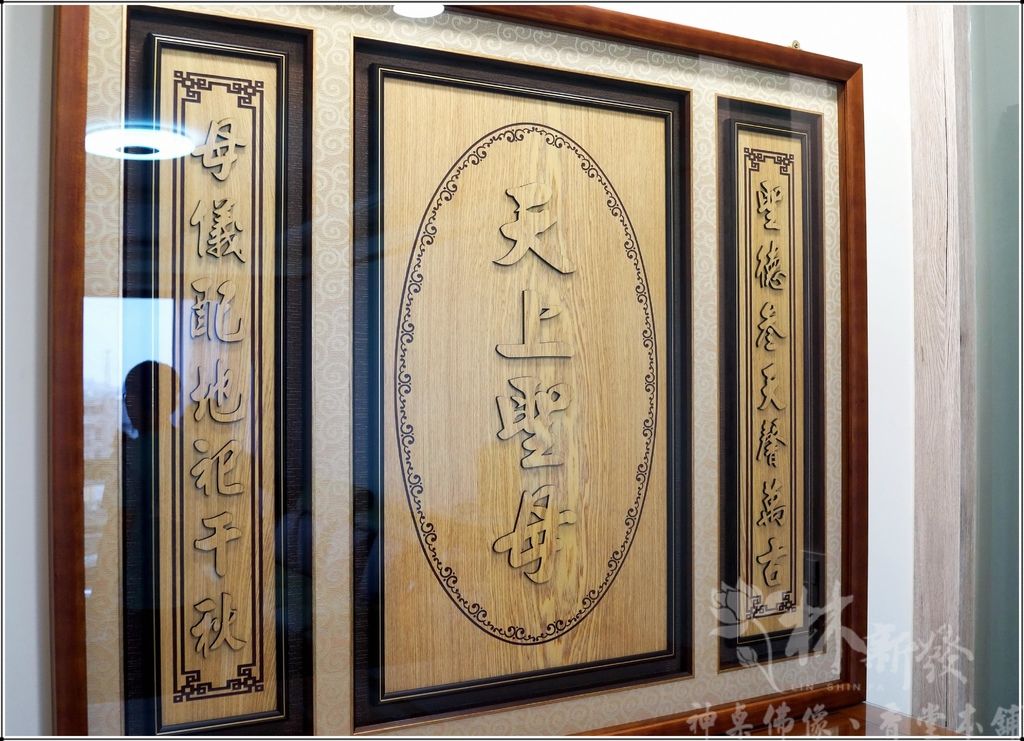 聖德參天聲萬古
天上聖母
母儀配地祀千秋
林新發
LIN SHIN FA
神桌佛像、香堂本舖